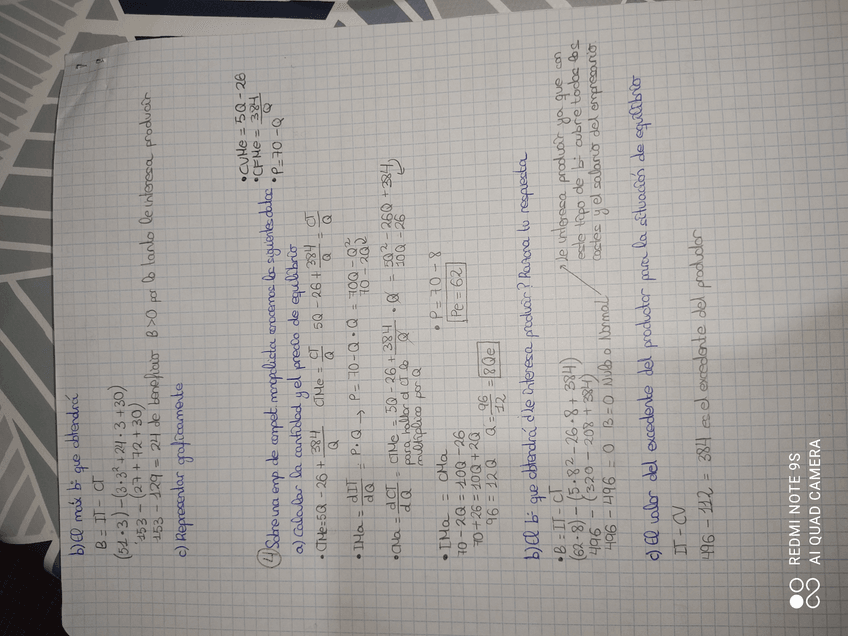 7
8
b) El máx bº que obtendrá
B = IT - CT
(51·3) - (3·3² + 24·3 + 30)
153 - (27 + 72 + 30)
153 - 129 = 24 de beneficio B>0 por lo tanto le interesa producir
c) Representar graficamente
④ Sobre una emp de compet monopolística conocemos los siguientes datos
• CVMe = 5Q - 26
• CFMe = 384/Q
• P = 70 - Q
a) Calcular la cantidad y el precio de equilibrio
• CTMe = 5Q - 26 + 384/Q CTMe = CT/Q 5Q - 26 + 384/Q = CT/Q
• IMa = dIT/dQ = P·Q → P = 70 - Q · Q = 70Q - Q²
70 - 2Q
• CMa = dCT/dQ = CTMe = 5Q - 26 + 384/Q · Q = 5Q² - 26Q + 384
10Q - 26
para hallar el CT lo
multiplico por Q
• IMa = CMa
70 - 2Q = 10Q - 26
70 + 26 = 10Q + 2Q
96 = 12Q Q = 96/12 = 8Qe
• P = 70 - 8
Pe = 62
b) El bº que obtendrá ¿le interesa producir? Razona tu respuesta
• B = IT - CT
(62·8) - (5·8² - 26·8 + 384)
496 - (320 - 208 + 384)
496 - 496 = 0 B = 0 Nulo o Normal
le interesa producir ya que con
este tipo de bº cubre todos los
costes y el salario del empresario
c) El valor del excedente del productor para la situación de equilibrio
IT - CV
496 - 112 = 384 es el excedente del productor
REDMI NOTE 9S
AI QUAD CAMERA